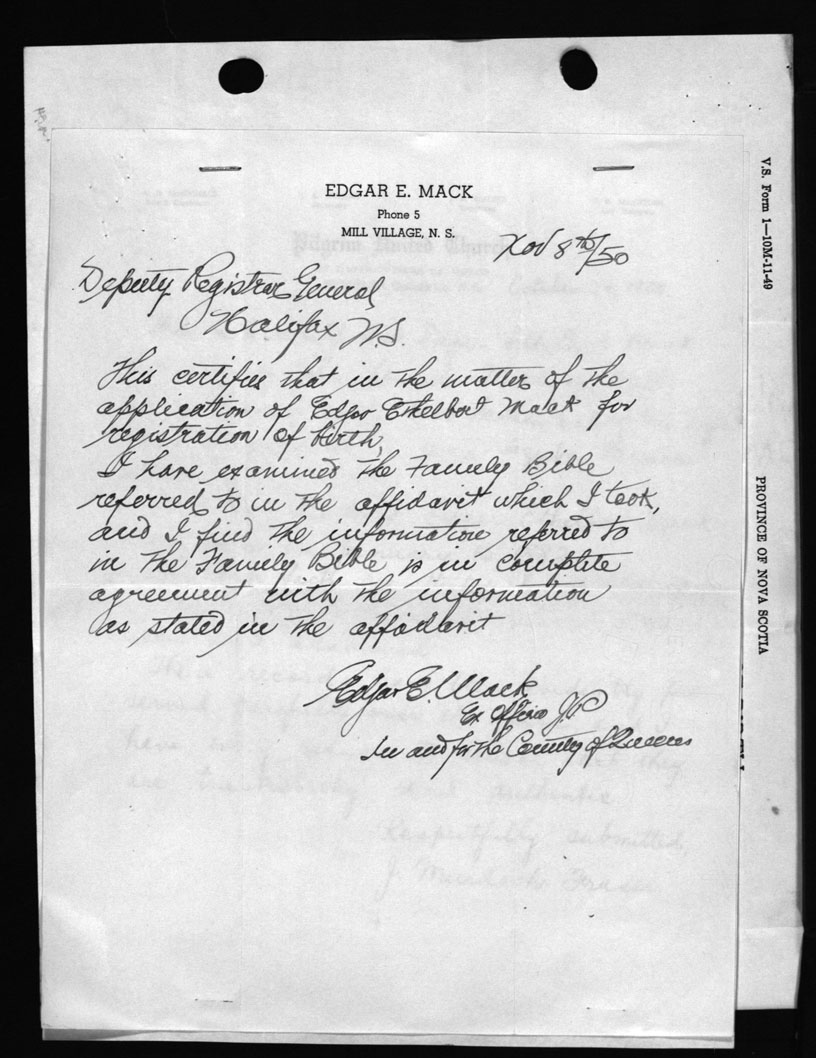 EDGAR E. MACK
Phone 5
MILL VILLAGE, N. S.
Nov 8th/50
Deputy Registrar General
Halifax N.S.
This certifies that in the matter of the
application of Edgar Ethelbert Mack for
registration of birth,
I have examined the Family Bible
referred to in the affidavit which I took,
and I find the information referred to
in the Family Bible is in complete
agreement with the information
as stated in the affidavit
Edgar E. Mack
Ex Officio J.P
In and for the County of Queens
V.S. Form 1—10M-11-49
PROVINCE OF NOVA SCOTIA
Pilgrim United Church
Respectfully submitted,
J. Murdoch Fraser